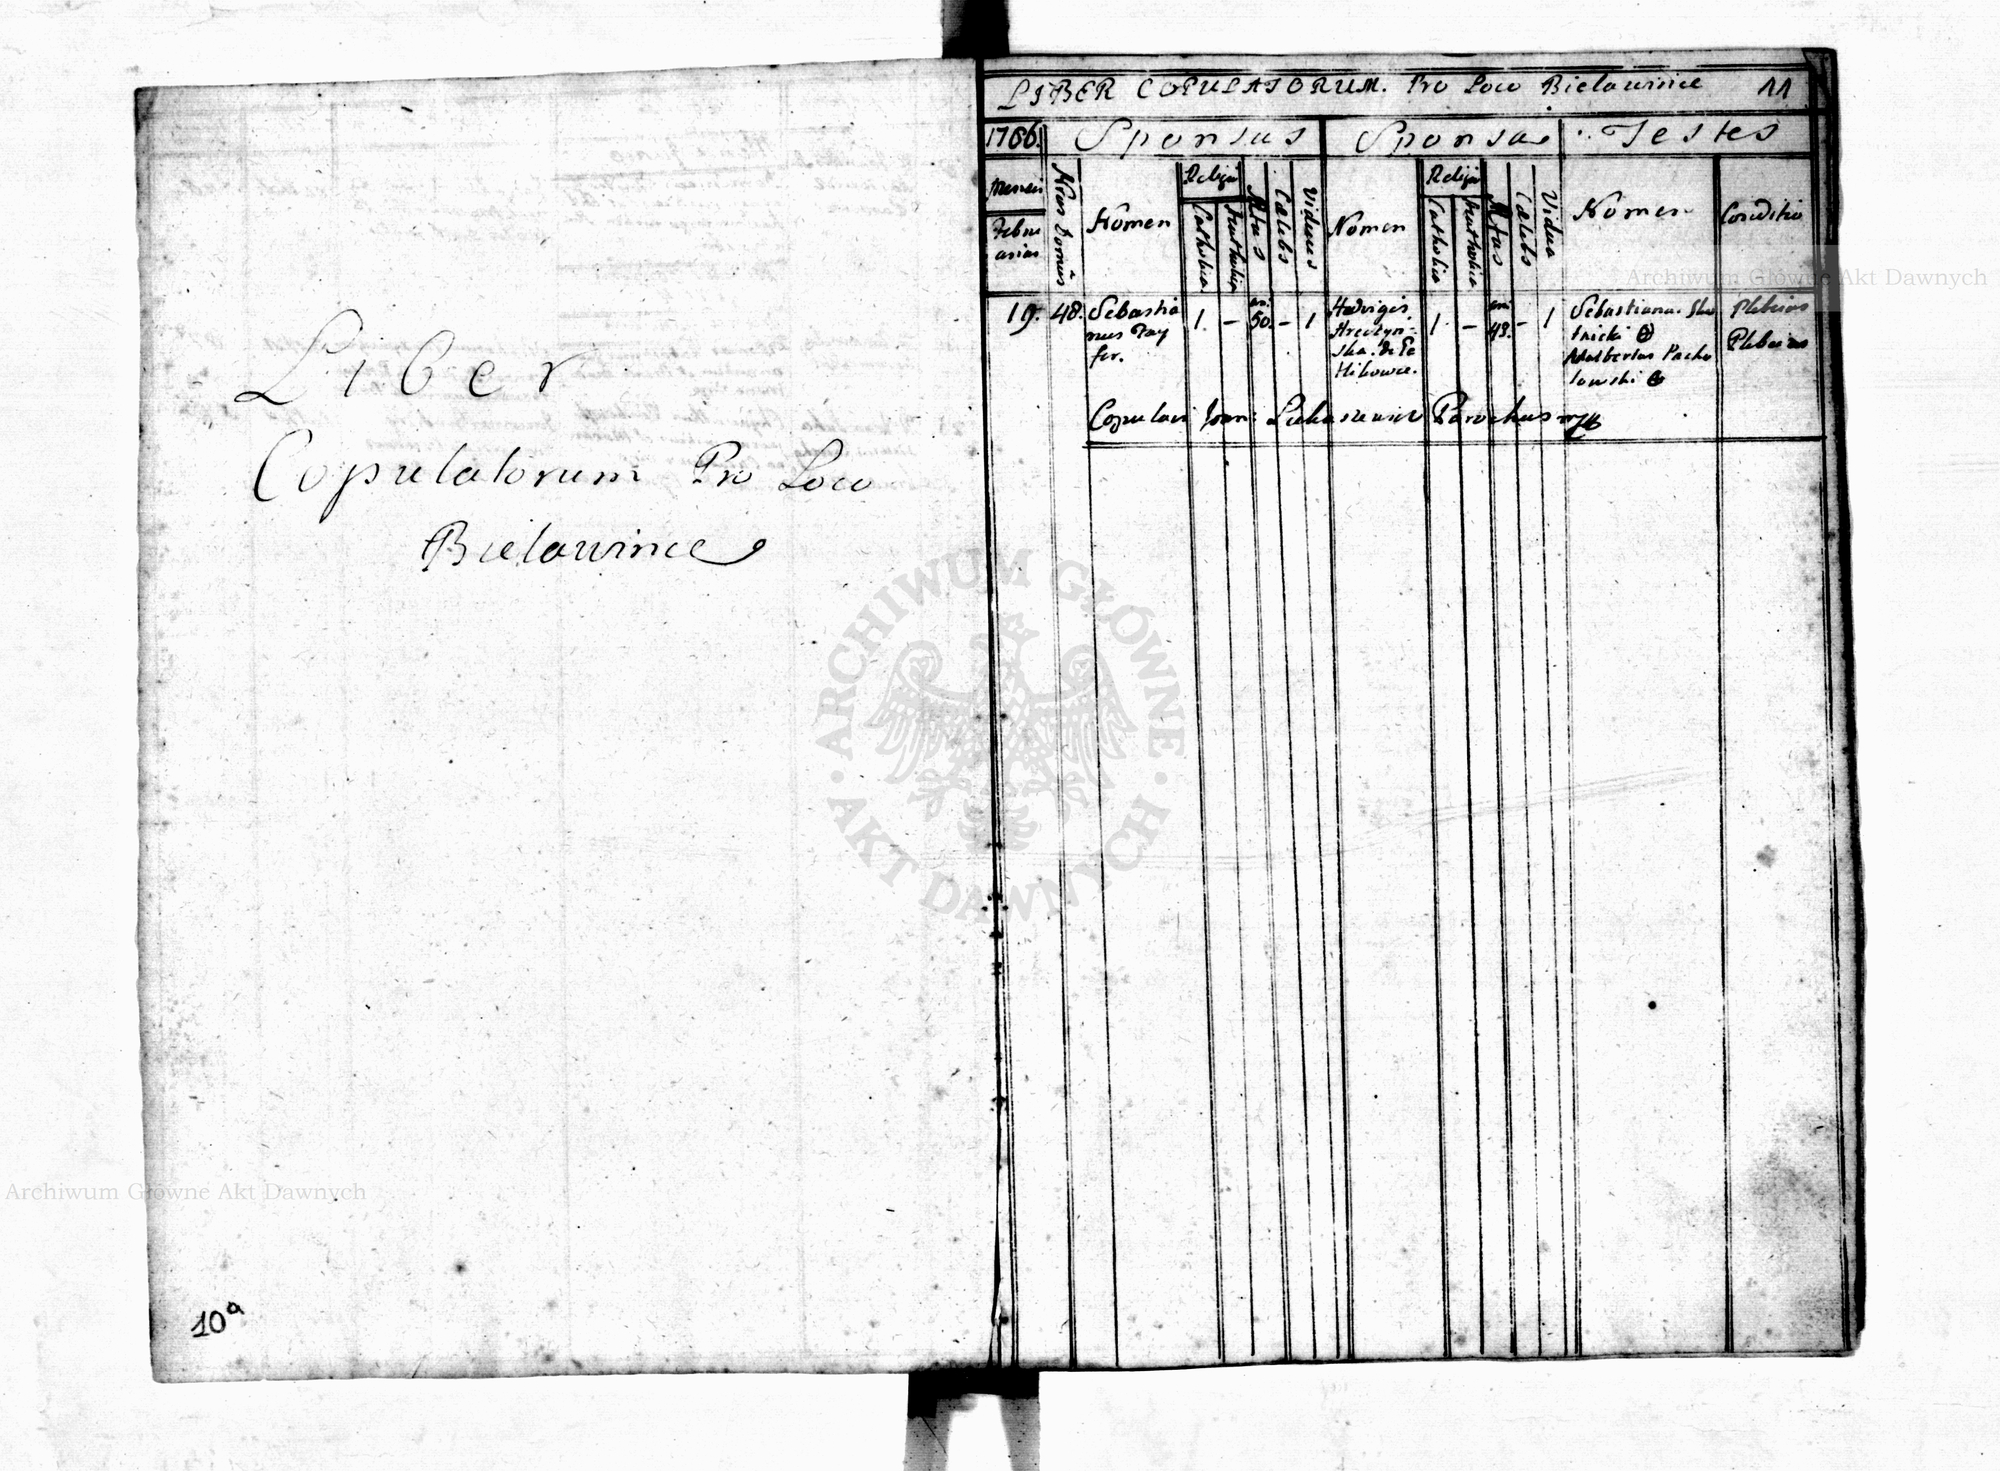 Liber
Copulatorum Pro Loco
Bielawince
10a
LIBER COPULATORUM. Pro Loco Bielawince 11
1786. Sponsus Sponsa Testes
Mensis
Februarius
Nrus Domus
Nomen
Religio
Catholica
Ætas
Cælebs
Viduus
Nomen
Religio
Catholica
Ætas
Cælebs
Vidua
Nomen
Conditio
19. 48. Sebastia 1. – an. 50. – 1 Hedvigis 1 – an. 43. – 1 Sebastianus Plebeius
nus
fer.
ska. de Pe
tnicki ⊕
Adalbertus Pacho Plebeius
lowski ⊕
Copulavi Joan: Lukasiewicz Parochus mpp
ARCHIWUM GŁÓWNE AKT DAWNYCH
Archiwum Główne Akt Dawnych
Archiwum Główne Akt Dawnych